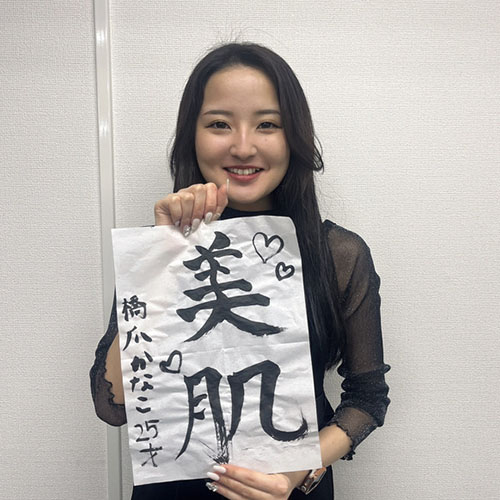 美肌
橋爪かなこ25才